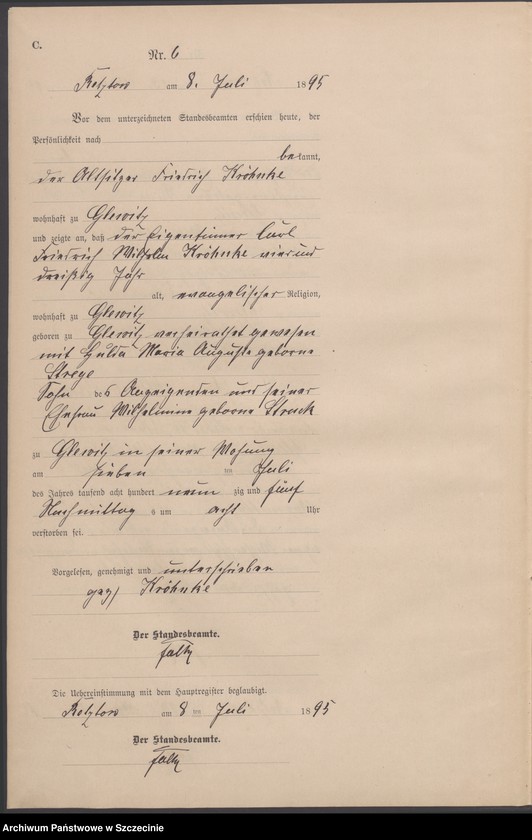 C.
Nr. 6
am 8. Juli 1895
Vor dem unterzeichneten Standesbeamten erschien heute, der
Persönlichkeit nach
bekannt,
der Altsitzer Friedrich Kröhnke
wohnhaft zu Glewitz
und zeigte an, daß der Eigenthümer Carl
Friedrich Wilhelm Kröhnke vierund
dreißig Jahr
alt, evangelischer Religion,
wohnhaft zu Glewitz
geboren zu Glewitz verheirathet gewesen
mit Hulda Maria Auguste geborne
Strege
Sohn des Anzeigenden und seiner
Ehefrau Wilhelmine geborne Struck
zu Glewitz in seiner Wohnung
am sieben ten Juli
des Jahres tausend acht hundert neun zig und fünf
Nachmittag s um acht Uhr
verstorben sei.
Vorgelesen, genehmigt und unterschrieben
gez) Kröhnke
Der Standesbeamte.
Die Uebereinstimmung mit dem Hauptregister beglaubigt.
am 8 ten Juli 1895
Der Standesbeamte.
Archiwum Państwowe w Szczecinie